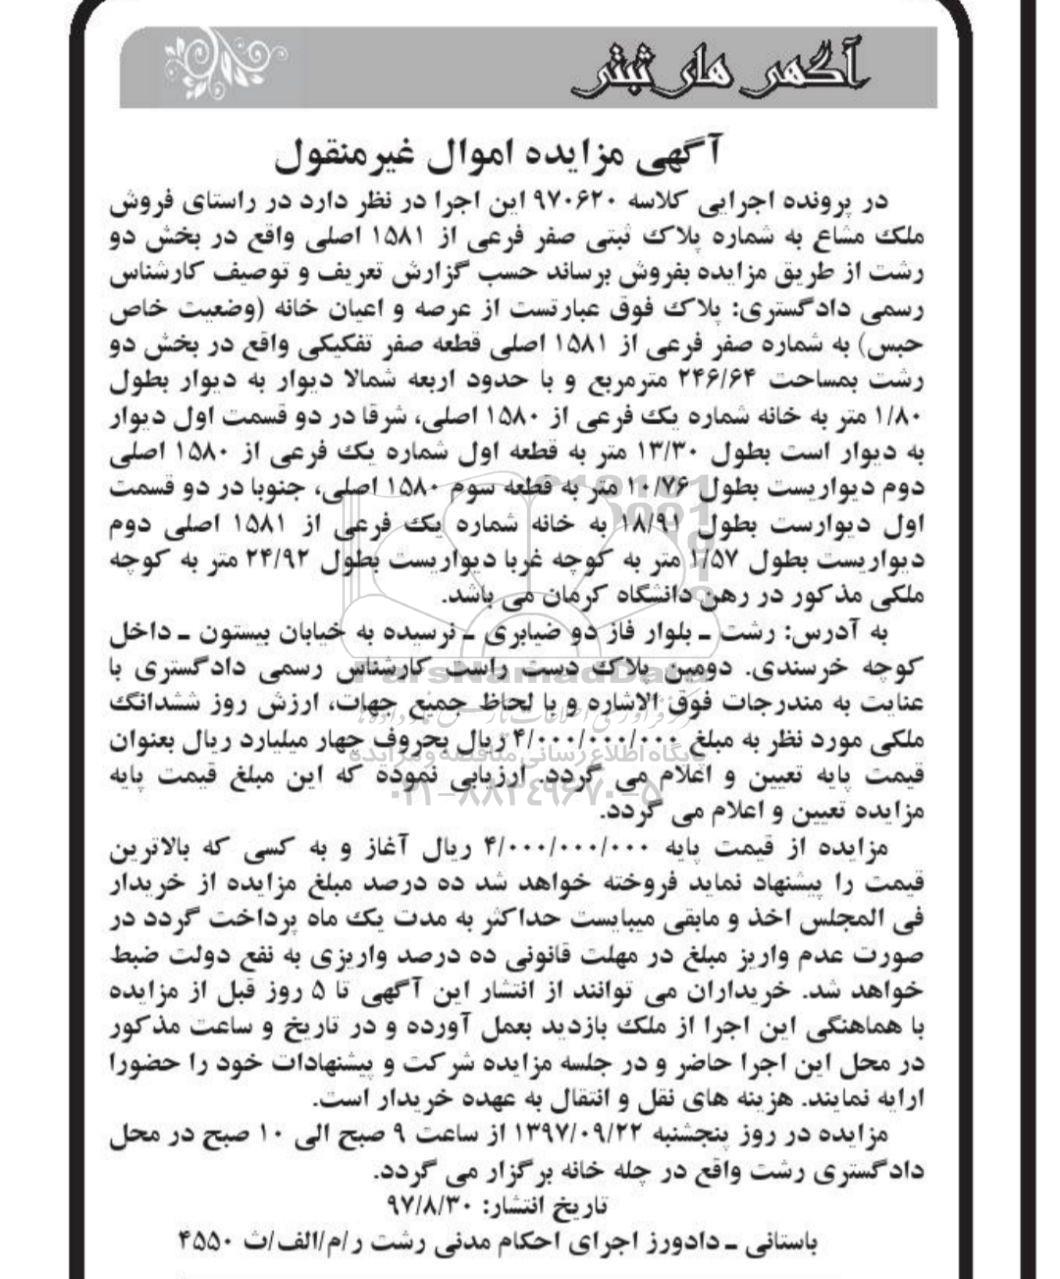 آگهی های ثبتی
آگهی مزایده اموال غیرمنقول
در پرونده اجرایی کلاسه ۹۷۰۶۲۰ این اجرا در نظر دارد در راستای فروش
ملک مشاع به شماره پلاک ثبتی صفر فرعی از ۱۵۸۱ اصلی واقع در بخش دو
رشت از طریق مزایده بفروش برساند حسب گزارش تعریف و توصیف کارشناس
رسمی دادگستری: پلاک فوق عبارتست از عرصه و اعیان خانه (وضعیت خاص
حبس) به شماره صفر فرعی از ۱۵۸۱ اصلی قطعه صفر تفکیکی واقع در بخش دو
رشت بمساحت ۲۴۶/۶۴ مترمربع و با حدود اربعه شمالا دیوار به دیوار بطول
۱/۸۰ متر به خانه شماره یک فرعی از ۱۵۸۰ اصلی، شرقا در دو قسمت اول دیوار
به دیوار است بطول ۱۳/۳۰ متر به قطعه اول شماره یک فرعی از ۱۵۸۰ اصلی
دوم دیواریست بطول ۱۰/۷۶ متر به قطعه سوم ۱۵۸۰ اصلی، جنوبا در دو قسمت
اول دیوارست بطول ۱۸/۹۱ به خانه شماره یک فرعی از ۱۵۸۱ اصلی دوم
دیواریست بطول ۱/۵۷ متر به کوچه غربا دیواریست بطول ۲۴/۹۲ متر به کوچه
ملکی مذکور در رهن دانشگاه کرمان می باشد.
به آدرس: رشت ـ بلوار فاز دو ضیابری ـ نرسیده به خیابان بیستون ـ داخل
کوچه خرسندی. دومین پلاک دست راست کارشناس رسمی دادگستری با
عنایت به مندرجات فوق الاشاره و با لحاظ جمیع جهات، ارزش روز ششدانگ
ملکی مورد نظر به مبلغ ۴/۰۰۰/۰۰۰/۰۰۰ ریال بحروف چهار میلیارد ریال بعنوان
قیمت پایه تعیین و اعلام می گردد. ارزیابی نموده که این مبلغ قیمت پایه
مزایده تعیین و اعلام می گردد.
مزایده از قیمت پایه ۴/۰۰۰/۰۰۰/۰۰۰ ریال آغاز و به کسی که بالاترین
قیمت را پیشنهاد نماید فروخته خواهد شد ده درصد مبلغ مزایده از خریدار
فی المجلس اخذ و مابقی میبایست حداکثر به مدت یک ماه پرداخت گردد در
صورت عدم واریز مبلغ در مهلت قانونی ده درصد واریزی به نفع دولت ضبط
خواهد شد. خریداران می توانند از انتشار این آگهی تا ۵ روز قبل از مزایده
با هماهنگی این اجرا از ملک بازدید بعمل آورده و در تاریخ و ساعت مذکور
در محل این اجرا حاضر و در جلسه مزایده شرکت و پیشنهادات خود را حضورا
ارایه نمایند. هزینه های نقل و انتقال به عهده خریدار است.
مزایده در روز پنجشنبه ۱۳۹۷/۰۹/۲۲ از ساعت ۹ صبح الی ۱۰ صبح در محل
دادگستری رشت واقع در چله خانه برگزار می گردد.
تاریخ انتشار: ۹۷/۸/۳۰
باستانی ـ دادورز اجرای احکام مدنی رشت ر/م/الف/ث ۴۵۵۰
ParsNamadData
پایگاه اطلاع رسانی مناقصه و مزایده
۰۲۱-۸۸۳۴۹۶۷۰-۵